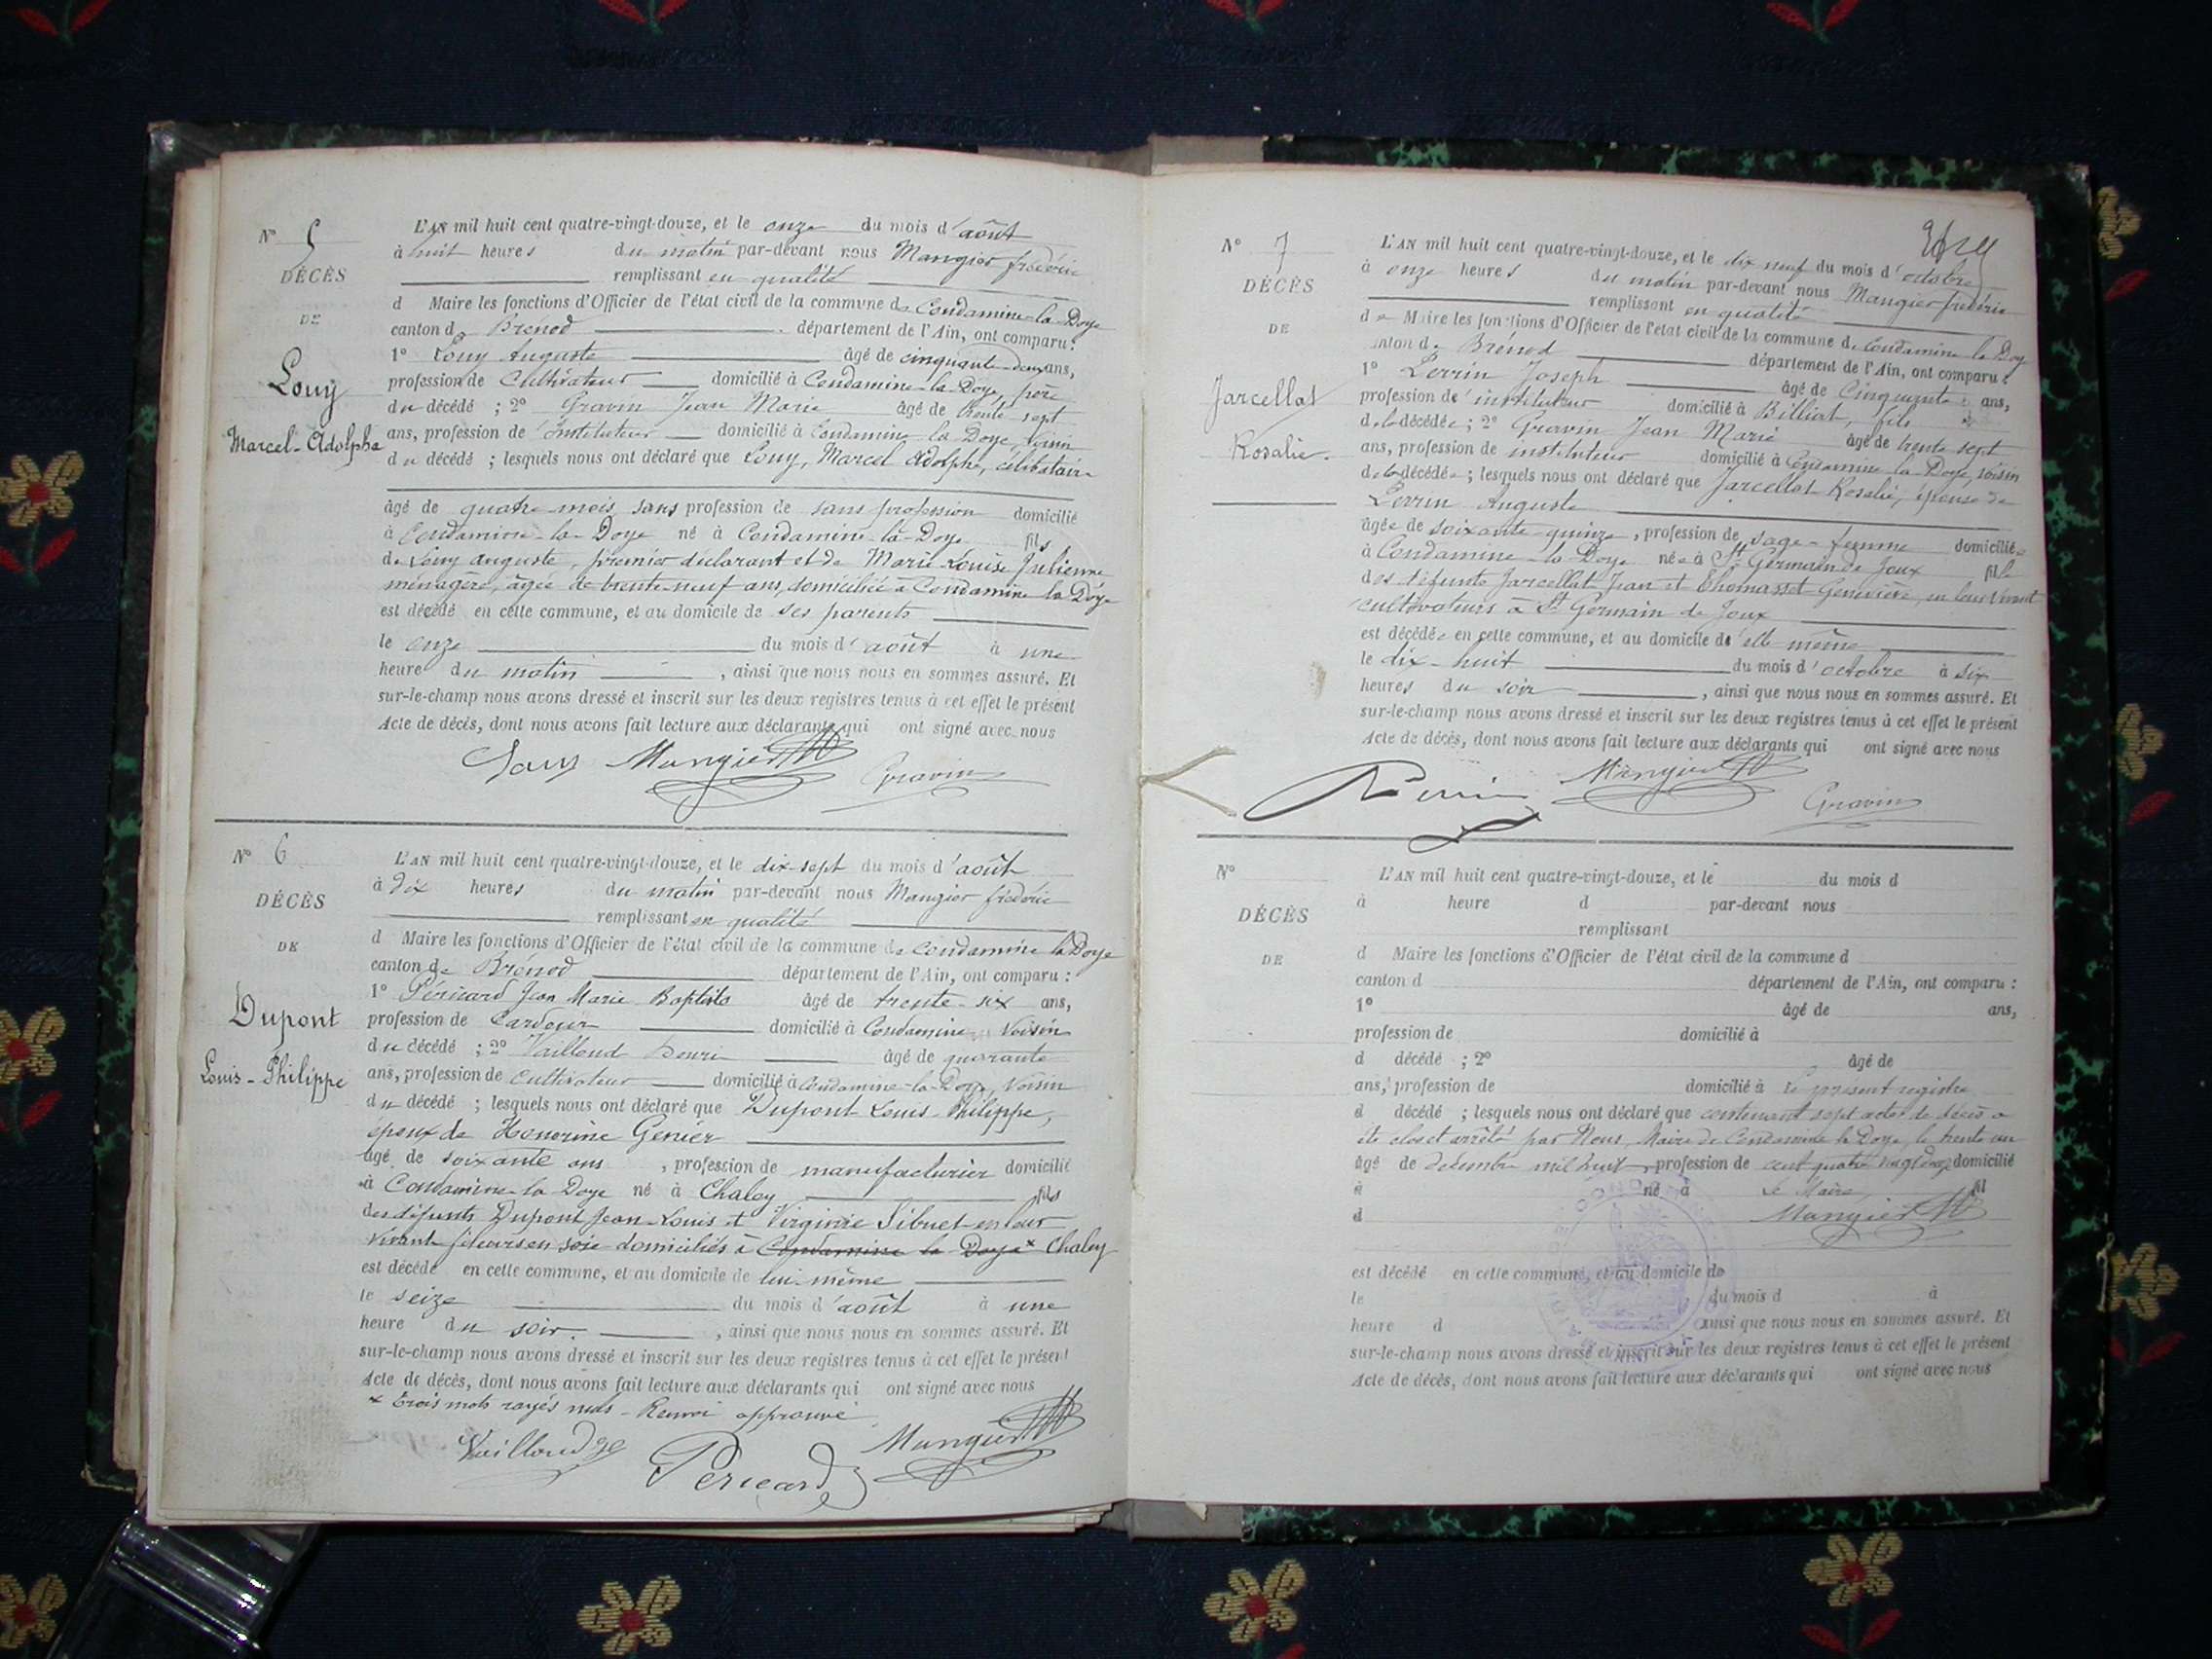 N° 5
DÉCÈS
DE
Louy
Marcel-Adolphe
L'AN mil huit cent quatre-vingt-douze, et le onze du mois d'août
à huit heures du matin par-devant nous Mangier frédéric
remplissant en qualité
d Maire les fonctions d'Officier de l'état civil de la commune de Condamine-la-Doye
canton de Brénod département de l'Ain, ont comparu :
1° Louy Auguste âgé de cinquante-deux ans,
profession de Cultivateur domicilié à Condamine-la-Doye, père
du décédé ; 2° Gravin Jean Marie âgé de trente sept
ans, profession de Instituteur domicilié à Condamine la Doye, voisin
du décédé ; lesquels nous ont déclaré que Louy, Marcel Adolphe, célibataire
âgé de quatre mois, sans profession de sans profession domicilié
à Condamine-la-Doye né à Condamine-la-Doye fils
de Louy Auguste, premier déclarant et de Marie-Louise Julienne
ménagère, âgée de trente-neuf ans, domiciliée à Condamine la Doye
est décédé en cette commune, et au domicile de ses parents
le onze du mois d'août à une
heure du matin , ainsi que nous nous en sommes assuré. Et
sur-le-champ nous avons dressé et inscrit sur les deux registres tenus à cet effet le présent
Acte de décès, dont nous avons fait lecture aux déclarants qui ont signé avec nous
Louy Mangier Gravin
N° 6
DÉCÈS
DE
Dupont
Louis-Philippe
L'AN mil huit cent quatre-vingt-douze, et le dix-sept du mois d'août
à dix heures du matin par-devant nous Mangier frédéric
remplissant en qualité
d Maire les fonctions d'Officier de l'état civil de la commune de Condamine la Doye
canton de Brénod département de l'Ain, ont comparu :
1° Péricard Jean Marie Baptiste âgé de trente-six ans,
profession de Cardeur domicilié à Condamine Voisin
du décédé ; 2° Vailloud Henri âgé de quarante
ans, profession de Cultivateur domicilié à Condamine-la-Doye, Voisin
du décédé ; lesquels nous ont déclaré que Dupont Louis-Philippe,
époux de Honorine Genier
âgé de soixante ans , profession de manufacturier domicilié
à Condamine-la Doye né à Chaley fils
des défunts Dupont Jean-Louis et Virginie Sibuet en leur
vivant fileurs en soie domiciliés à Condamine la Doye × Chaley
est décédé en cette commune, et au domicile de lui-même
le seize du mois d'août à une
heure du soir. , ainsi que nous nous en sommes assuré. Et
sur-le-champ nous avons dressé et inscrit sur les deux registres tenus à cet effet le présent
Acte de décès, dont nous avons fait lecture aux déclarants qui ont signé avec nous
× Trois mots rayés nuls - Renvoi approuvé
Vailloud Péricard Mangier
N° 7
DÉCÈS
DE
Jarcellat
Rosalie.
L'AN mil huit cent quatre-vingt-douze, et le dix neuf du mois d'octobre
à onze heures du matin par-devant nous Mangier frédéric
remplissant en qualité
de Maire les fonctions d'Officier de l'état civil de la commune de Condamine la Doye
canton de Brénod département de l'Ain, ont comparu :
1° Perrin Joseph âgé de Cinquante ans,
profession d'instituteur domicilié à Billiat, fils
de la décédée ; 2° Gravin Jean Marie âgé de trente sept
ans, profession de instituteur domicilié à Condamine la Doye, voisin
de la décédée ; lesquels nous ont déclaré que Jarcellat Rosalie, épouse de
Perrin Auguste
âgée de soixante-quinze , profession de sage-femme domiciliée
à Condamine-la-Doye née à St Germain de Joux fille
des défunts Jarcellat Jean et Thomasset Geneviève, en leur vivant
cultivateurs à St Germain de Joux
est décédée en cette commune, et au domicile d'elle même
le dix-huit du mois d'octobre à six
heures du soir , ainsi que nous nous en sommes assuré. Et
sur-le-champ nous avons dressé et inscrit sur les deux registres tenus à cet effet le présent
Acte de décès, dont nous avons fait lecture aux déclarants qui ont signé avec nous
Perrin Mangier Gravin
N°
DÉCÈS
DE
L'AN mil huit cent quatre-vingt-douze, et le du mois d
à heure d par-devant nous
remplissant
d Maire les fonctions d'Officier de l'état civil de la commune d
canton d département de l'Ain, ont comparu :
1° âgé de ans,
profession de domicilié à
d décédé ; 2° âgé de
ans, profession de domicilié à Le présent registre
d décédé ; lesquels nous ont déclaré que contenant sept actes de décès a
été clos et arrêté par Nous, Maire de Condamine la Doye, le trente un
âgé de décembre mil huit , profession de cent quatre vingt douze domicilié
à né à Le Maire, fil
d Mangier
est décédé en cette commune, et au domicile de
le du mois d à
heure d ainsi que nous nous en sommes assuré. Et
sur-le-champ nous avons dressé et inscrit sur les deux registres tenus à cet effet le présent
Acte de décès, dont nous avons fait lecture aux déclarants qui ont signé avec nous